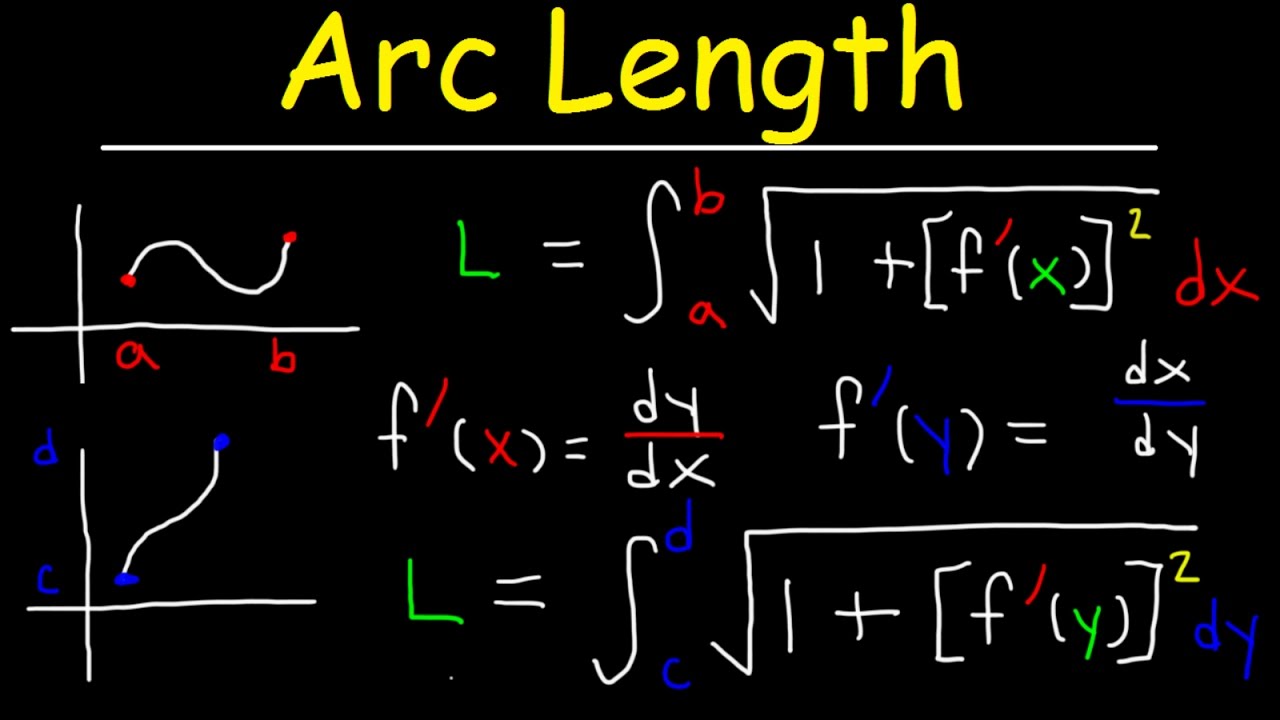 Arc Length
L = ∫_a^b √(1 + [f'(x)]²) dx
a b
f'(x) = dy/dx
f'(y) = dx/dy
d
c
L = ∫_c^d √(1 + [f'(y)]²) dy